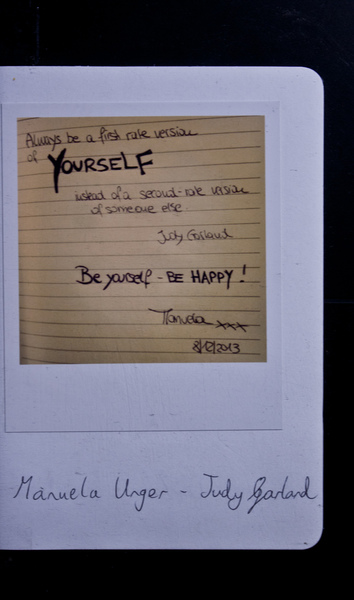 Always be a first rate version
of YOURSELF
instead of a second-rate version
of someone else.
Judy Garland
Be yourself - BE HAPPY!
Manuela xxx
8/12/2013
Manuela Unger - Judy Garland